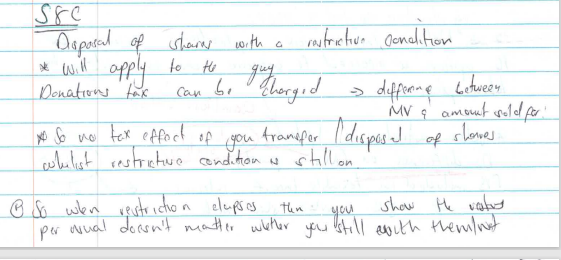 S8C
Disposal of shares with a restrictive condition
* will apply to the guy
Donations tax can be charged => difference between
MV & amount sold for
* So no tax effect of you transfer / disposal of shares
whilst restrictive condition is still on
So when restriction elapses then you show the
per usual doesn't matter whether you still with them/not